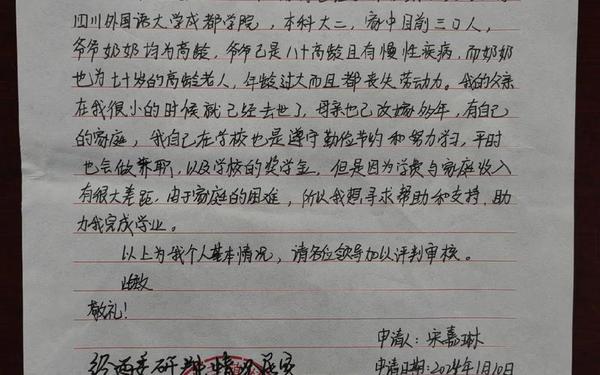 四川外国语大学成都学院，本科大二，家中目前三口人，
爷爷奶奶均为高龄，爷爷已是八十高龄且有慢性疾病，而奶奶
也为七十岁的高龄老人，年龄过大而且都丧失劳动力。我的父亲
在我很小的时候就已经去世了，母亲也已改嫁多年，有自己
的家庭，我自己在学校也是遵守勤俭节约和努力学习，平时
也会做兼职，以及学校的奖学金，但是因为学费与家庭收入
有很大差距，由于家庭的困难，所以我想寻求帮助和支持，助
力我完成学业。
以上为我个人基本情况，请各位领导加以评判审核。
此致
敬礼！
申请人：宋嘉琳
申请日期：2024年1月10日
情况属实